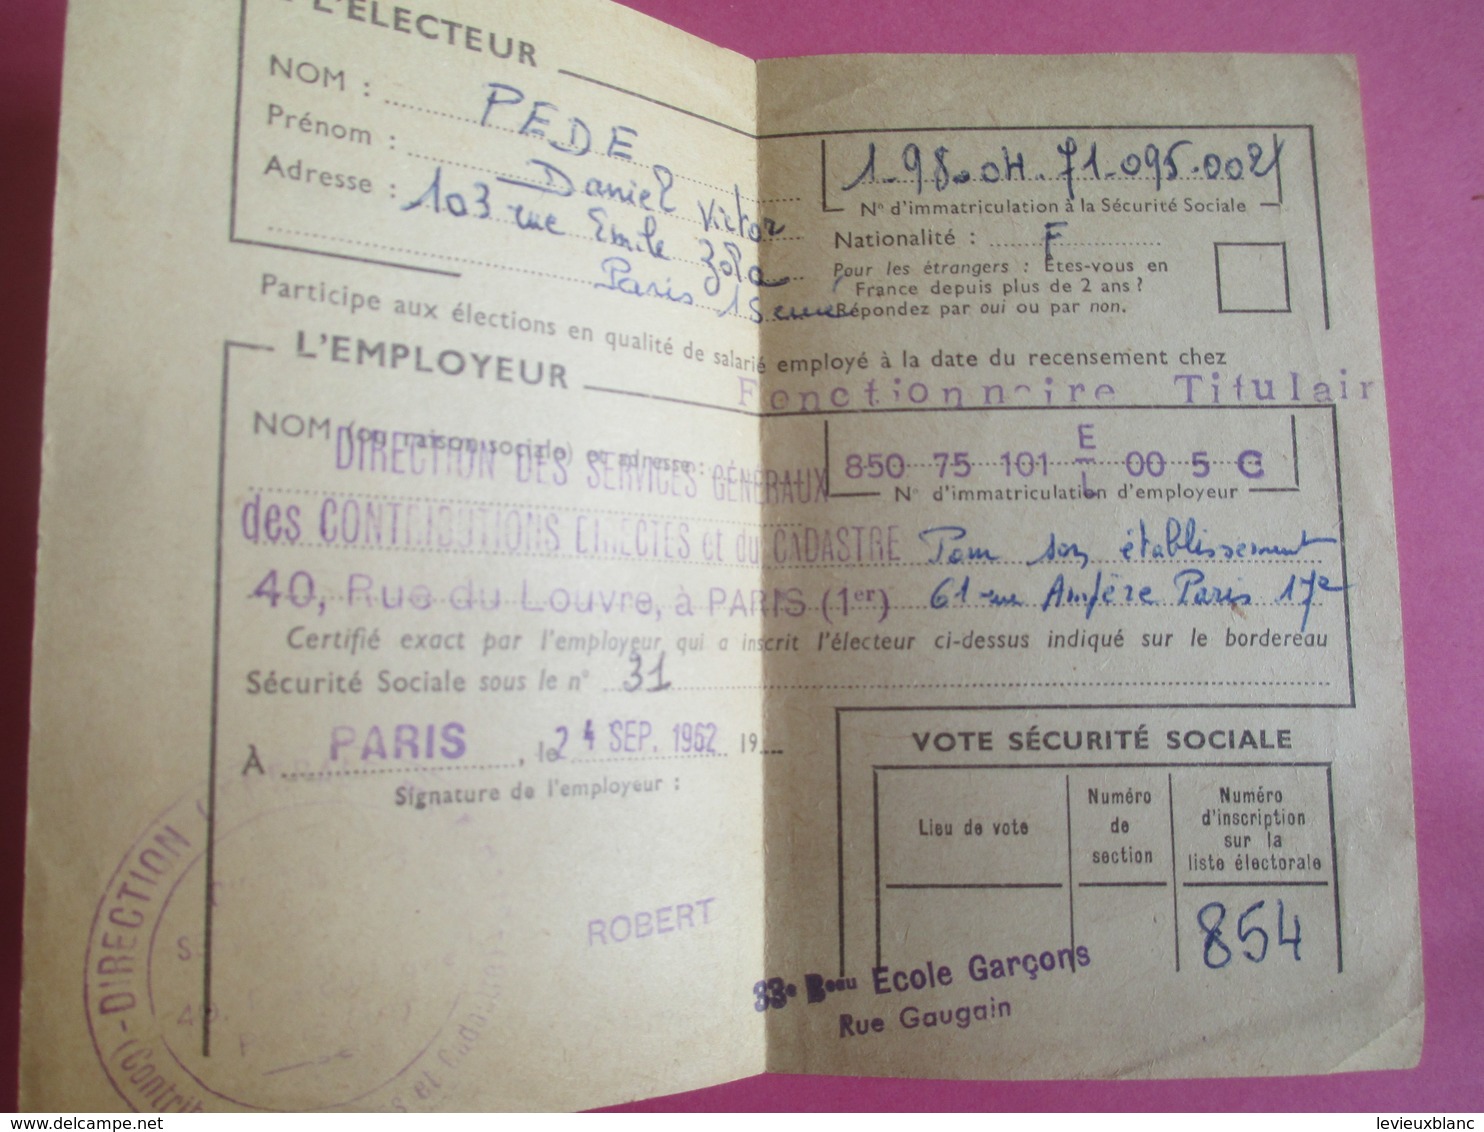 L'ÉLECTEUR
NOM : PEDE
Prénom : Daniel Victor
Adresse : 103 rue Emile Zola
Paris 15eme
1-98-04-71-095-002
N° d'immatriculation à la Sécurité Sociale
Nationalité : F
Pour les étrangers : Êtes-vous en
France depuis plus de 2 ans ?
Répondez par oui ou par non.
Participe aux élections en qualité de salarié employé à la date du recensement chez
Fonctionnaire Titulair
L'EMPLOYEUR
NOM (ou raison sociale) et adresse :
DIRECTION DES SERVICES GÉNÉRAUX
des CONTRIBUTIONS DIRECTES et du CADASTRE
40, Rue du Louvre, à PARIS (1er)
850 75 101 E/L 00 5 C
N° d'immatriculation d'employeur
Pour son établissement
61 rue Ampère Paris 17e
Certifié exact par l'employeur qui a inscrit l'électeur ci-dessus indiqué sur le bordereau
Sécurité Sociale sous le n° 31
À PARIS, le 24 SEP. 1962 19
Signature de l'employeur :
ROBERT
DIRECTION
et Cadastre
VOTE SÉCURITÉ SOCIALE
Lieu de vote
Numéro
de
section
Numéro
d'inscription
sur la
liste électorale
854
33e Beau Ecole Garçons
Rue Gaugain
delcampe.net
levieuxblanc